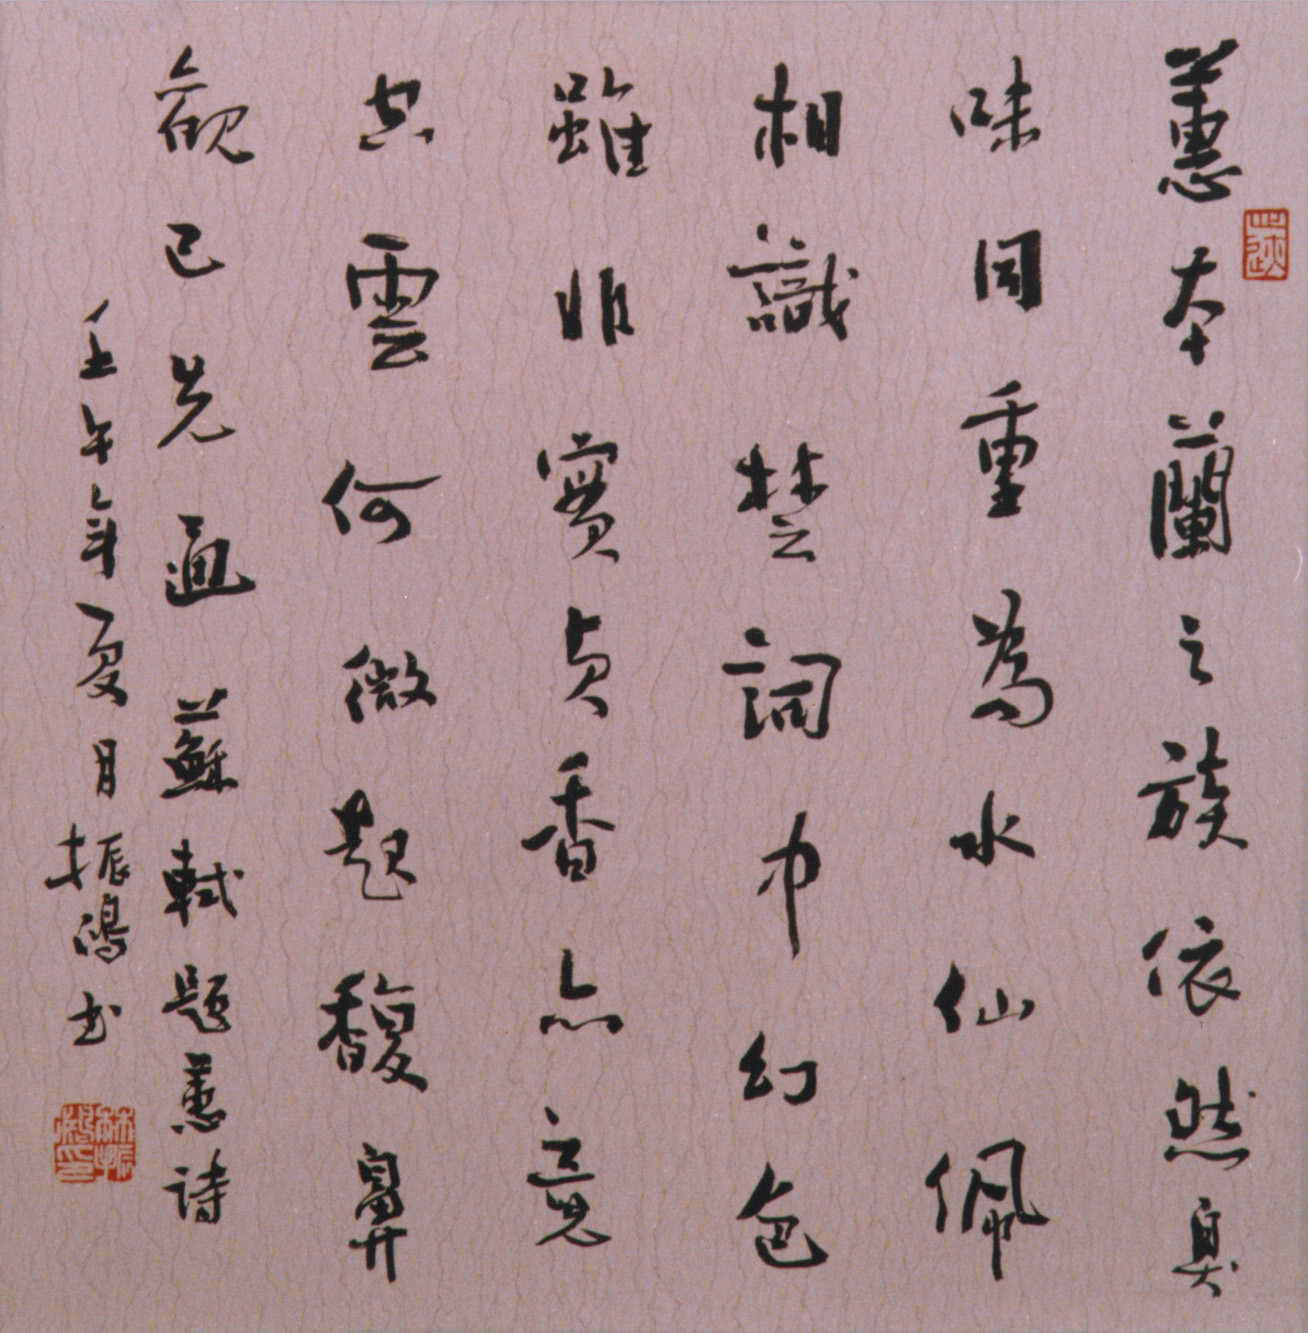 蕙本蘭之族依然臭
味同重為水仙佩
相識楚詞中幻色
雖非實真香亦竟
空雲何微起馥鼻
觀已先通 蘇軾題蕙詩
壬午年夏月振鴻书